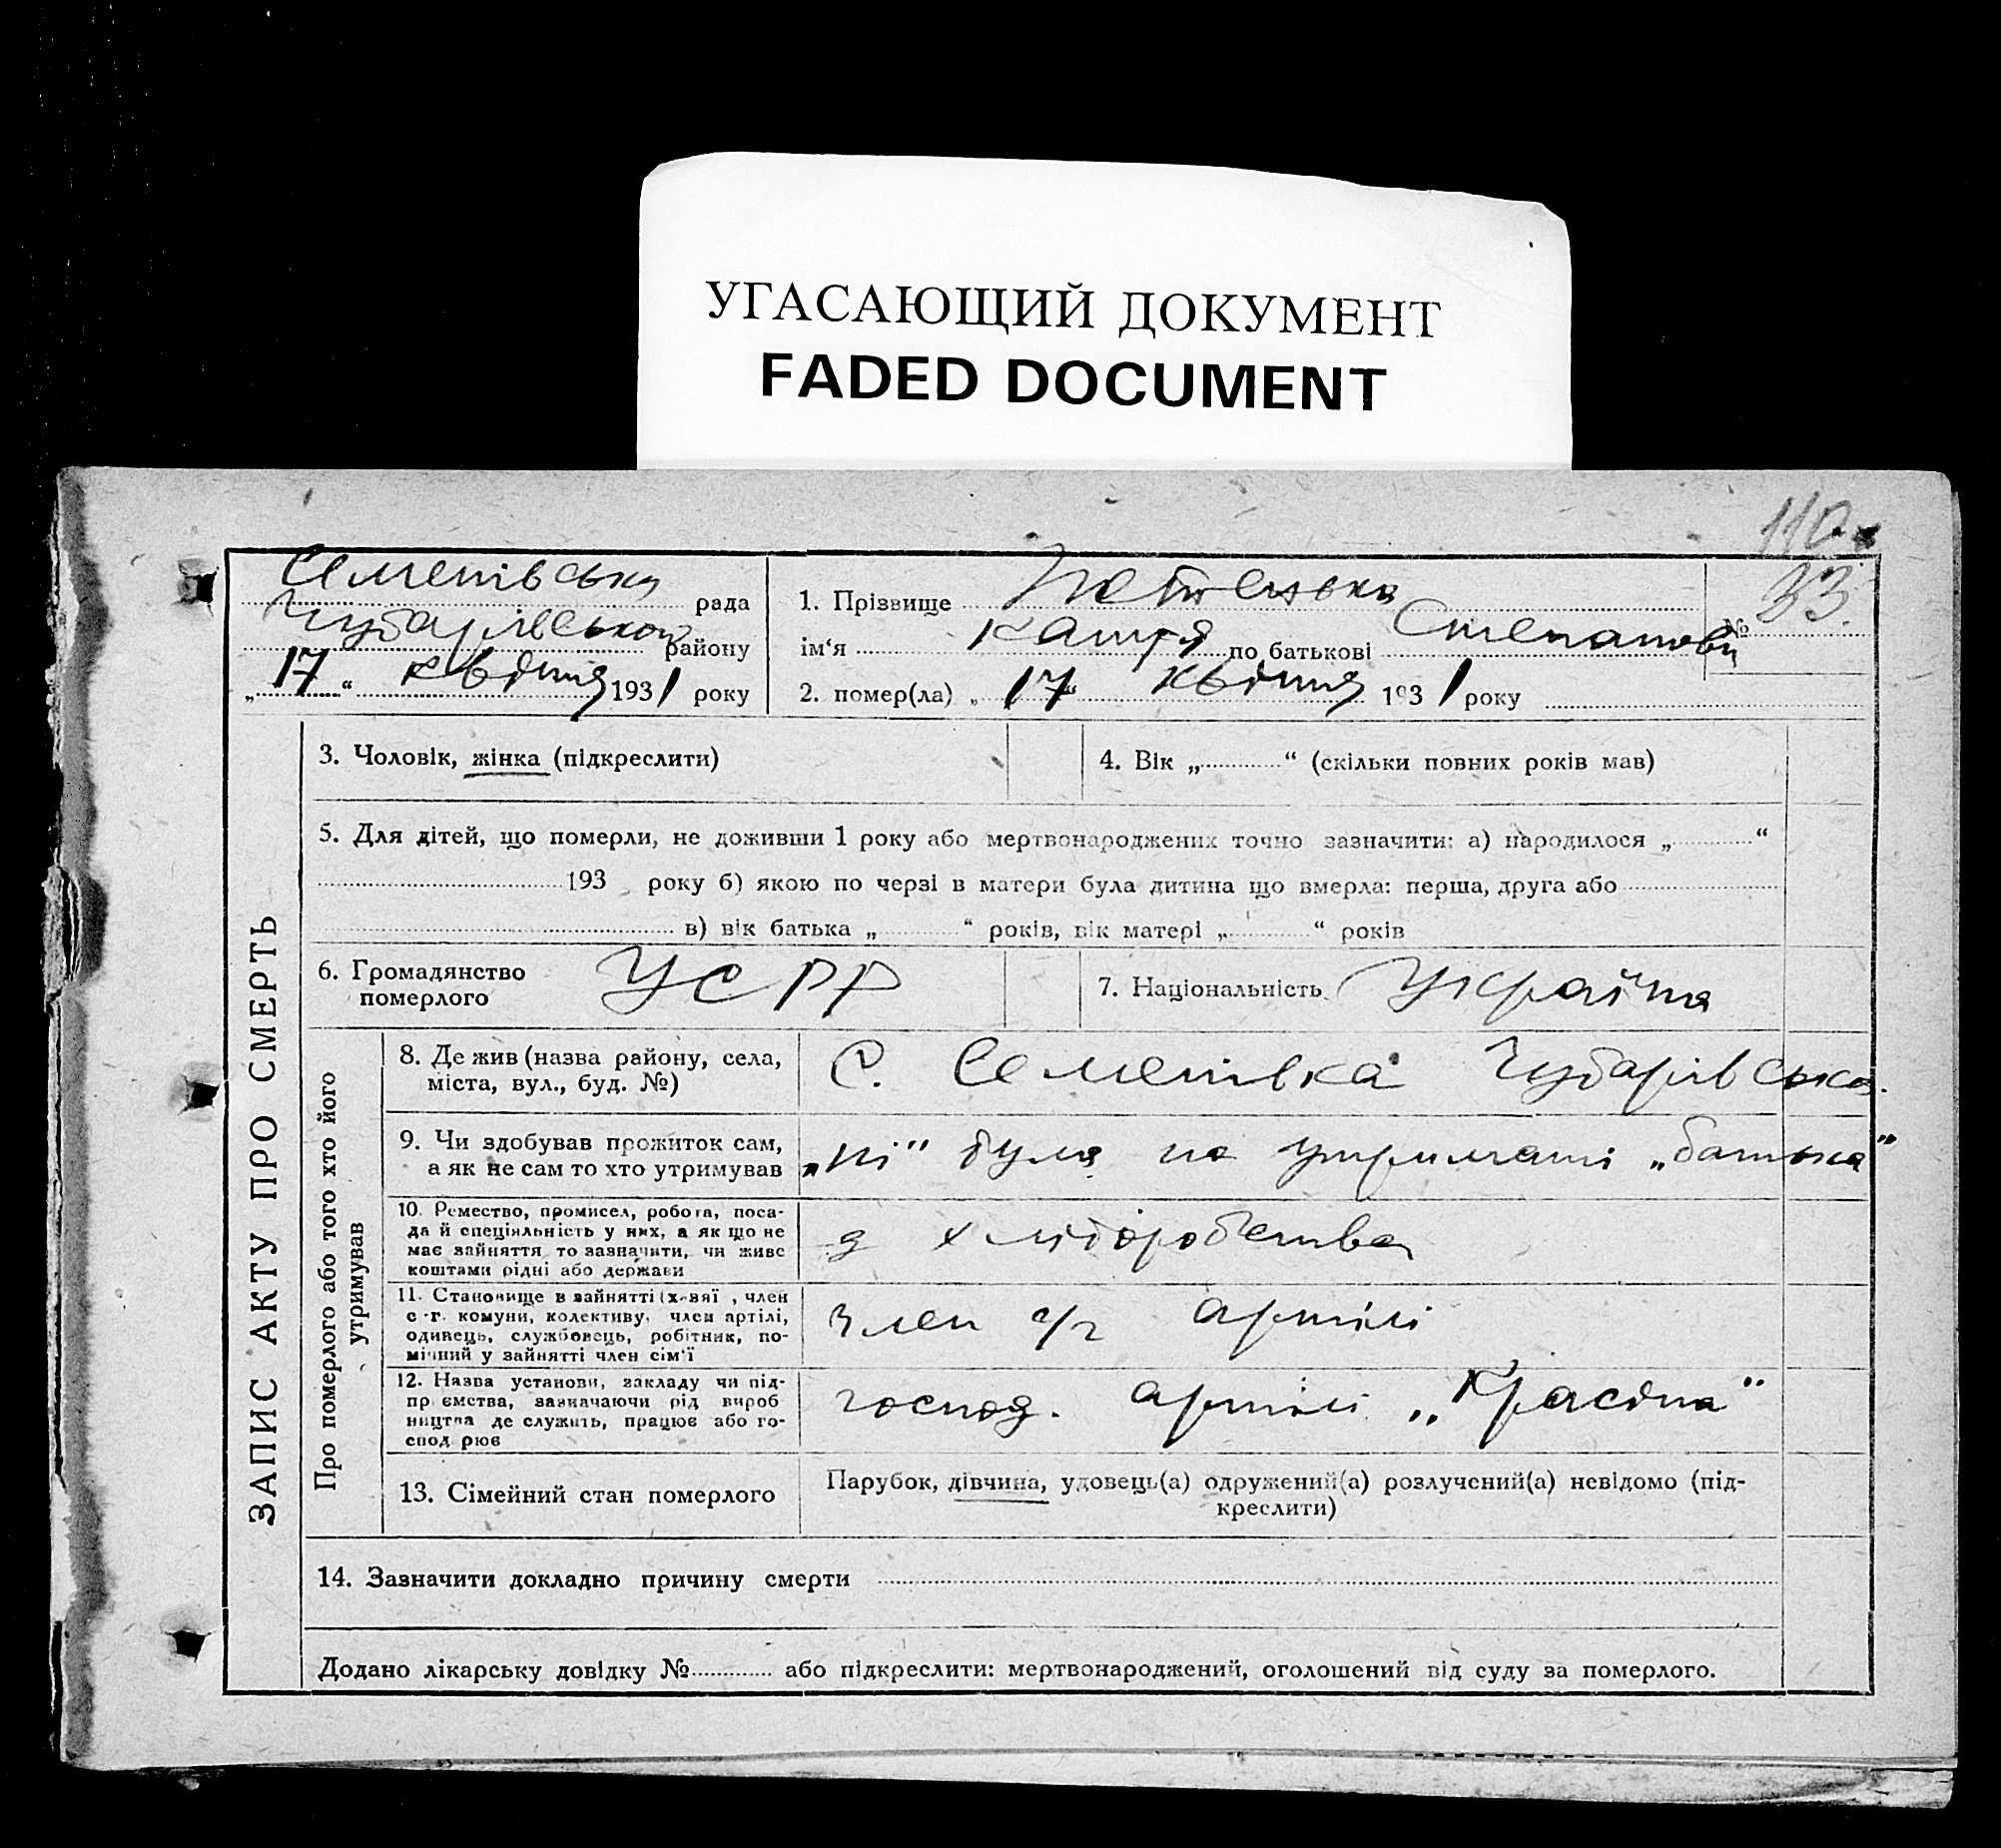 УГАСАЮЩИЙ ДОКУМЕНТ
FADED DOCUMENT
110
Семенівська рада
Чубарівського району
„17“ квітня 1931 року
1. Прізвище
№ 33.
ім‘я Катря по батькові Степановн
2. помер(ла) „17“ квітня 1931 року
ЗАПИС АКТУ ПРО СМЕРТЬ
3. Чоловік, жінка (підкреслити)
4. Вік „ “ (скільки повних років мав)
5. Для дітей, що померли, не доживши 1 року або мертвонароджених точно зазначити: а) народилося „ “
193 року б) якою по черзі в матери була дитина що вмерла: перша, друга або
в) вік батька „ “ років, вік матері „ “ років
6. Громадянство померлого УСРР
7. Національність Україна
Про померлого або того хто його утримував
8. Де жив (назва району, села,
міста, вул., буд. №)
С. Семенівка Чубарівсько.
9. Чи здобував прожиток сам,
а як не сам то хто утримував
„ні“ була на утриманні „батька“
10. Ремество, промисел, робота, поса-
да й спеціяльність у них, а як що не
має зайняття то зазначити, чи живе
коштами рідні або держави
з хліборобства
11. Становище в зайнятті (х-вяї , член
с-г. комуни, колективу, член артілі,
одивець, службовець, робітник, по-
мічний у зайнятті член сім‘ї
член с/г артілі
12. Назва установи, закладу чи під-
пр ємства, зазначаючи рід вироб
ництва де служить, працює або го-
спод рює
господ. артілі „Красіна“
13. Сімейний стан померлого
Парубок, дівчина, удовець(а) одружений(а) розлучений(а) невідомо (під-
креслити)
14. Зазначити докладно причину смерти
Додано лікарську довідку № або підкреслити: мертвонароджений, оголошений від суду за померлого.